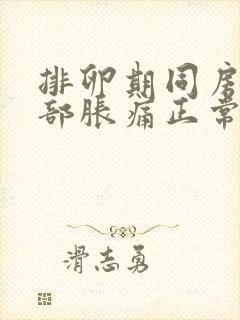 排卵期同房
部胀痛正常
滑志勇